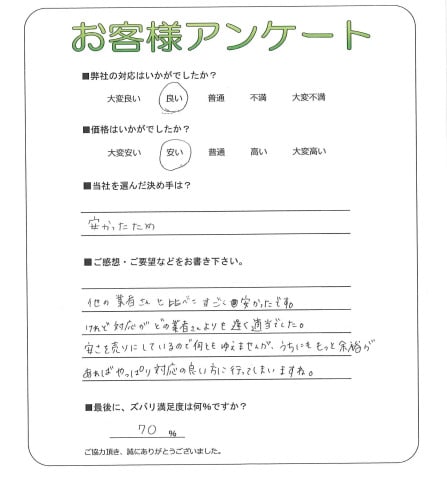 お客様アンケート
■弊社の対応はいかがでしたか？
大変良い 良い 普通 不満 大変不満
■価格はいかがでしたか？
大変安い 安い 普通 高い 大変高い
■当社を選んだ決め手は？
安かったため
■ご感想・ご要望などをお書き下さい。
他の業者さんと比べてすごく安かったです。
けれど対応がどの業者さんよりも遅く適当でした。
安さを売りにしているので何ともゆえませんが、うちにももっと余裕が
あればやっぱり対応の良い方に行ってしまいますね。
■最後に、ズバリ満足度は何%ですか？
70 %
ご協力頂き、誠にありがとうございました。